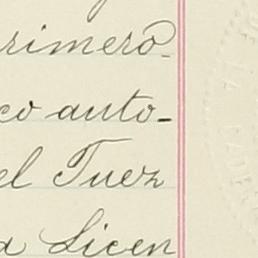 rimero
co auto-
el Juez
a Licen